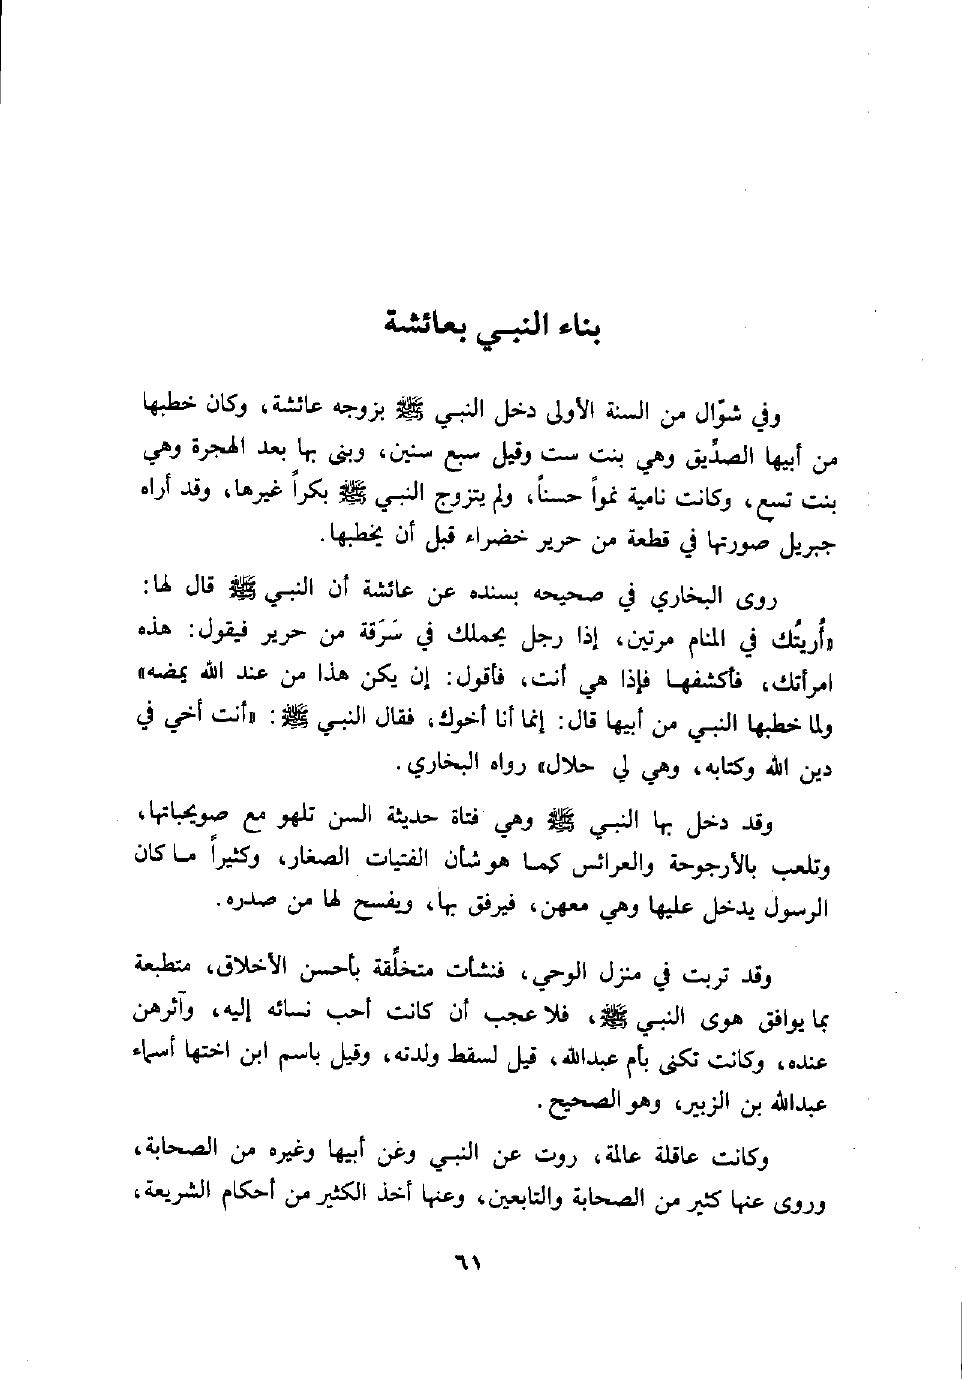 بناء النبي بعائشة
وفي شوّال من السنة الأولى دخل النبي ﷺ بزوجه عائشة، وكان خطبها
من أبيها الصدِّيق وهي بنت ست وقيل سبع سنين، وبنى بها بعد الهجرة وهي
بنت تسع، وكانت نامية نمواً حسناً، ولم يتزوج النبي ﷺ بكراً غيرها، وقد أراه
جبريل صورتها في قطعة من حرير خضراء قبل أن يخطبها.
روى البخاري في صحيحه بسنده عن عائشة أن النبي ﷺ قال لها:
«أُريتُك في المنام مرتين، إذا رجل يحملك في سَرَقة من حرير فيقول: هذه
امرأتك، فأكشفها فإذا هي أنت، فأقول: إن يكن هذا من عند الله يمضه»
ولما خطبها النبي من أبيها قال: إنما أنا أخوك، فقال النبي ﷺ: «أنت أخي في
دين الله وكتابه، وهي لي حلال» رواه البخاري.
وقد دخل بها النبي ﷺ وهي فتاة حديثة السن تلهو مع صويحباتها،
وتلعب بالأرجوحة والعرائس كما هو شأن الفتيات الصغار، وكثيراً ما كان
الرسول يدخل عليها وهي معهن، فيرفق بها، ويفسح لها من صدره.
وقد تربت في منزل الوحي، فنشأت متخلَّقة بأحسن الأخلاق، متطبعة
بما يوافق هوى النبي ﷺ، فلا عجب أن كانت أحب نسائه إليه، وآثرهن
عنده، وكانت تكنى بأم عبدالله، قيل لسقط ولدته، وقيل باسم ابن اختها أسماء
عبدالله بن الزبير، وهو الصحيح.
وكانت عاقلة عالمة، روت عن النبي وعن أبيها وغيره من الصحابة،
وروى عنها كثير من الصحابة والتابعين، وعنها أخذ الكثير من أحكام الشريعة،
٦١